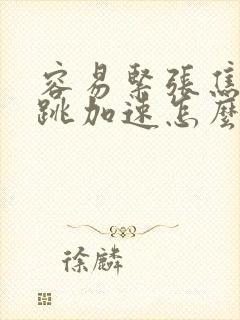 容易緊張焦
跳加速怎麼
徐麟